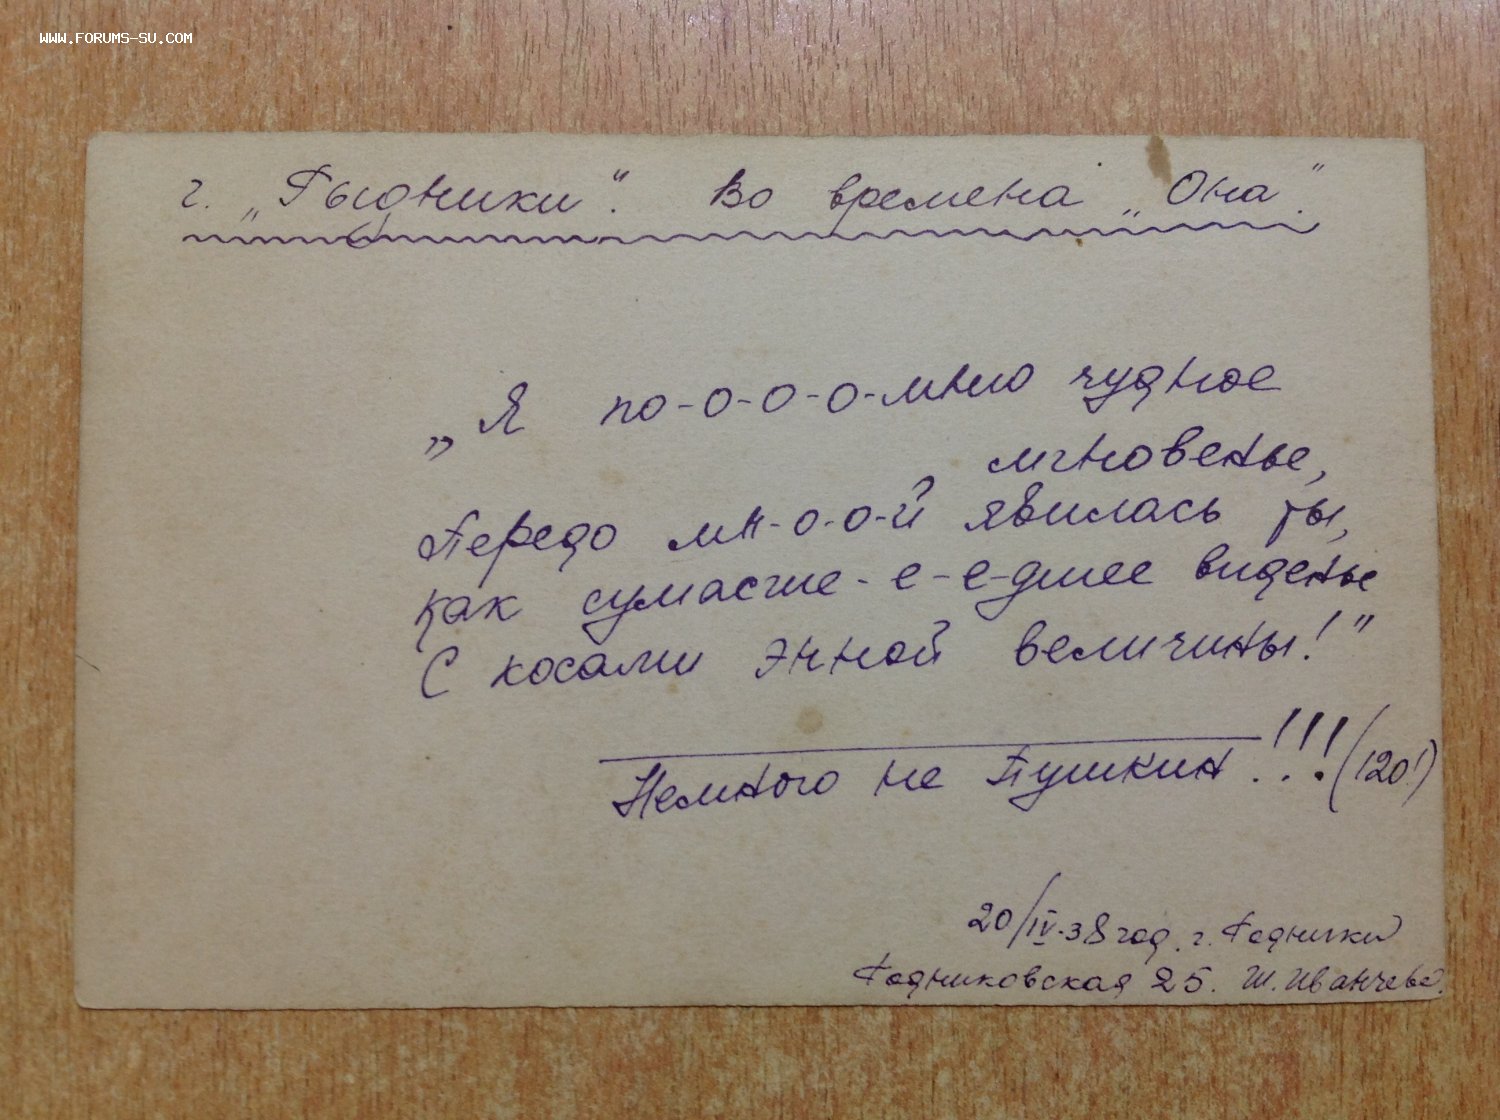 WWW.FORUMS-SU.COM
г. „Рыдники". Во времена „Она".
„Я по-о-о-о-мню чудное
мгновенье,
Передо мн-о-о-й явилась ты,
Как сумасше-е-е-дшее виденье
С косами энной величины!"
Немного не Пушкин!!! (120!)
20/IV-38 год. г. Родники
Родниковская 25. Ш. Иванчева.